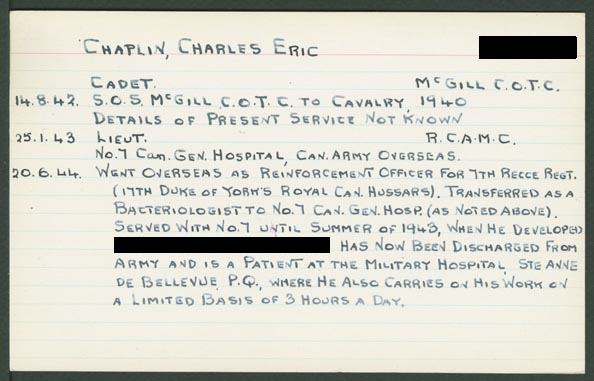 CHAPLIN, CHARLES ERIC
CADET. McGILL C.O.T.C.
14.8.42. S.O.S. McGILL C.O.T.C. TO CAVALRY, 1940
DETAILS OF PRESENT SERVICE NOT KNOWN
25.1.43 LIEUT. R.C.A.M.C.
No.7 Can. GEN. HOSPITAL, CAN. ARMY OVERSEAS.
20.6.44. WENT OVERSEAS AS REINFORCEMENT OFFICER FOR 7TH RECCE REGT.
(17TH DUKE OF YORK'S ROYAL CAN. HUSSARS). TRANSFERRED AS A
BACTERIOLOGIST TO No.7 CAN. GEN. HOSP. (AS NOTED ABOVE).
SERVED WITH No.7 UNTIL SUMMER OF 1943, WHEN HE DEVELOPED
HAS NOW BEEN DISCHARGED FROM
ARMY AND IS A PATIENT AT THE MILITARY HOSPITAL, STE ANNE
DE BELLEVUE, P.Q., WHERE HE ALSO CARRIES ON HIS WORK ON
A LIMITED BASIS OF 3 HOURS A DAY.